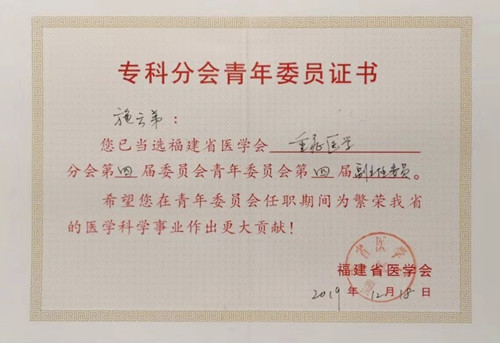 专科分会青年委员证书
施云弟：
您已当选福建省医学会重症医学
分会第四届委员会青年委员会第四届副主任委员。
希望您在青年委员会任职期间为繁荣我省
的医学科学事业作出更大贡献！
福建省医学会
2019年12月18日